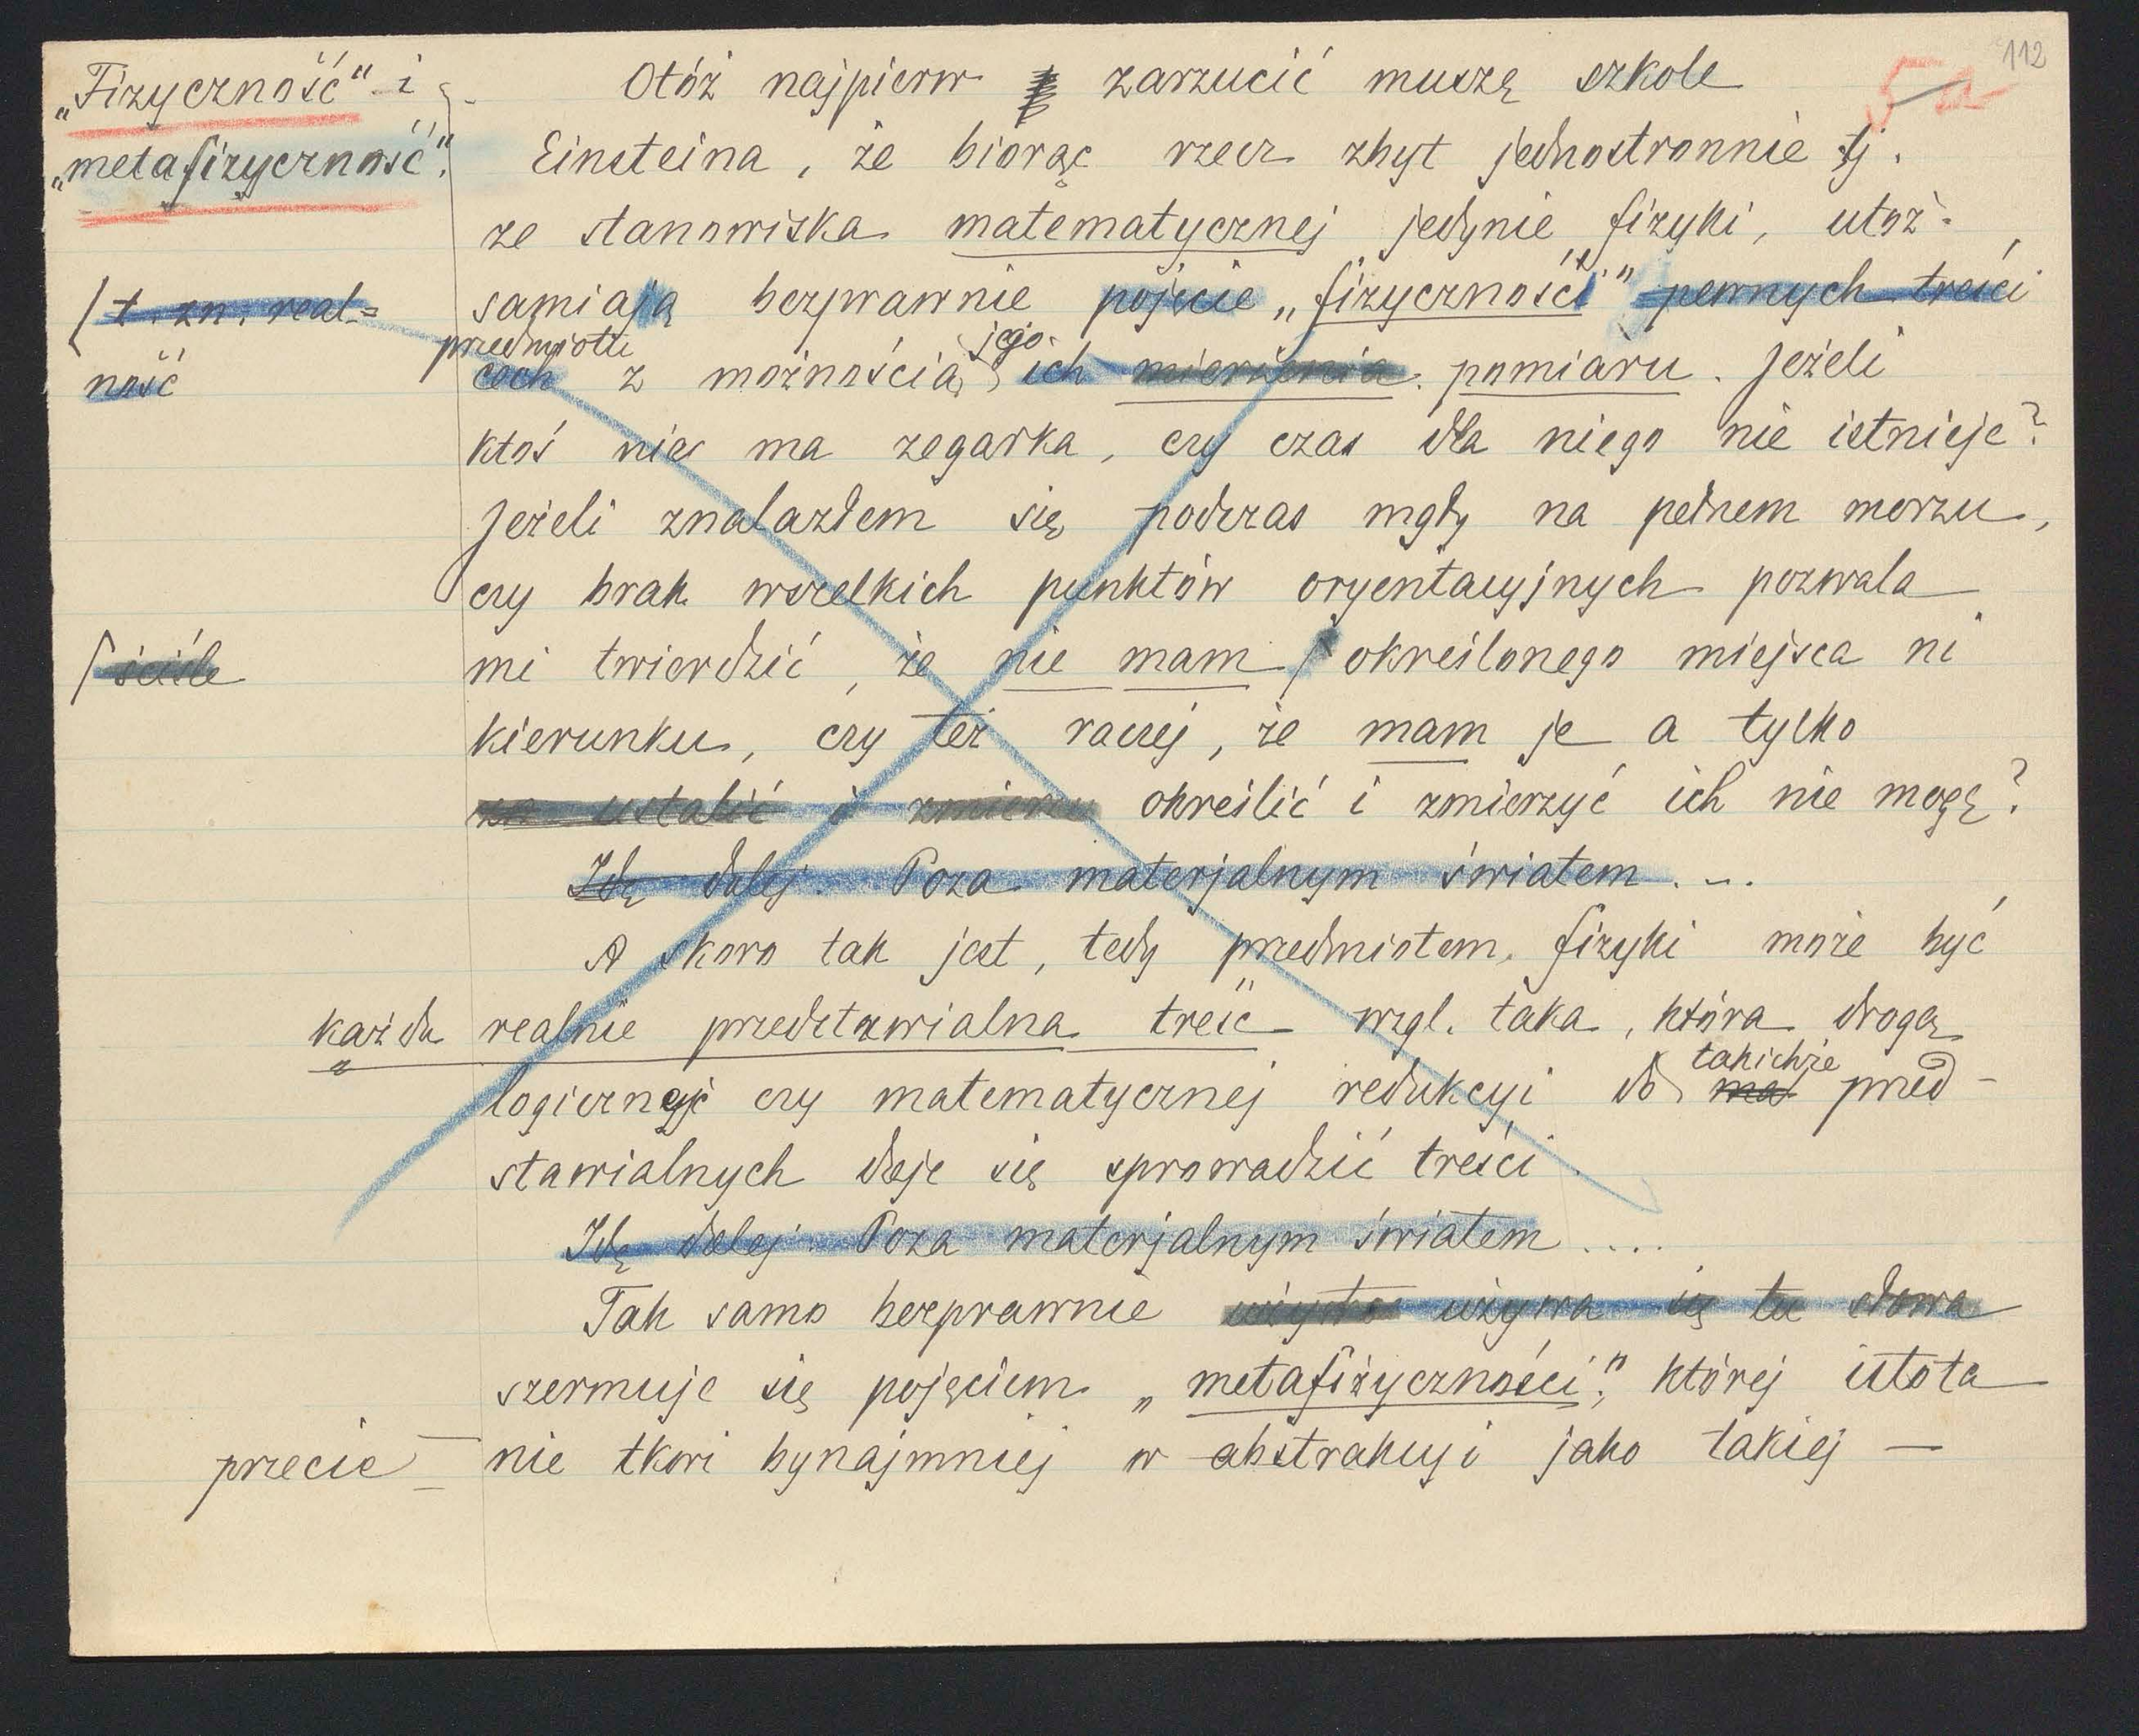 112
5a
„Fizyczność" i
„metafizyczność".
Otóż najpierw zarzucić muszę szkole
Einsteina, że biorąc rzecz zbyt jednostronnie tj.
ze stanowiska matematycznej jedynie fizyki, utoż-
samiają bezprawnie pojęcie „fizyczności" pewnych treści
/ t. zn. real=
ność
przedmiotu jego
cech z możnością ich mierzenia pomiaru. Jeżeli
ktoś nie ma zegarka, czy czas dla niego nie istnieje?
Jeżeli znalazłem się podczas mgły na pełnem morzu,
czy brak wszelkich punktów oryentacyjnych pozwala
mi twierdzić, że nie mam / określonego miejsca ni
/ ściśle
kierunku, czy też raczej, że mam je a tylko
ustalić i zmierzy określić i zmierzyć ich nie mogę?
Idę dalej. Poza materjalnym światem....
A skoro tak jest, tedy przedmiotem fizyki może być
każda realnie przedstawialna treść wzgl. taka, która drogą
takichże
logicznej czy matematycznej redukcyi do ma przed-
stawialnych daje się sprowadzić treści.
Idę dalej. Poza materjalnym światem....
Tak samo bezprawnie używa się tu słowa
szermuje się pojęciem „metafizyczności", której istota
przecie nie tkwi bynajmniej w abstrakcyi jako takiej —